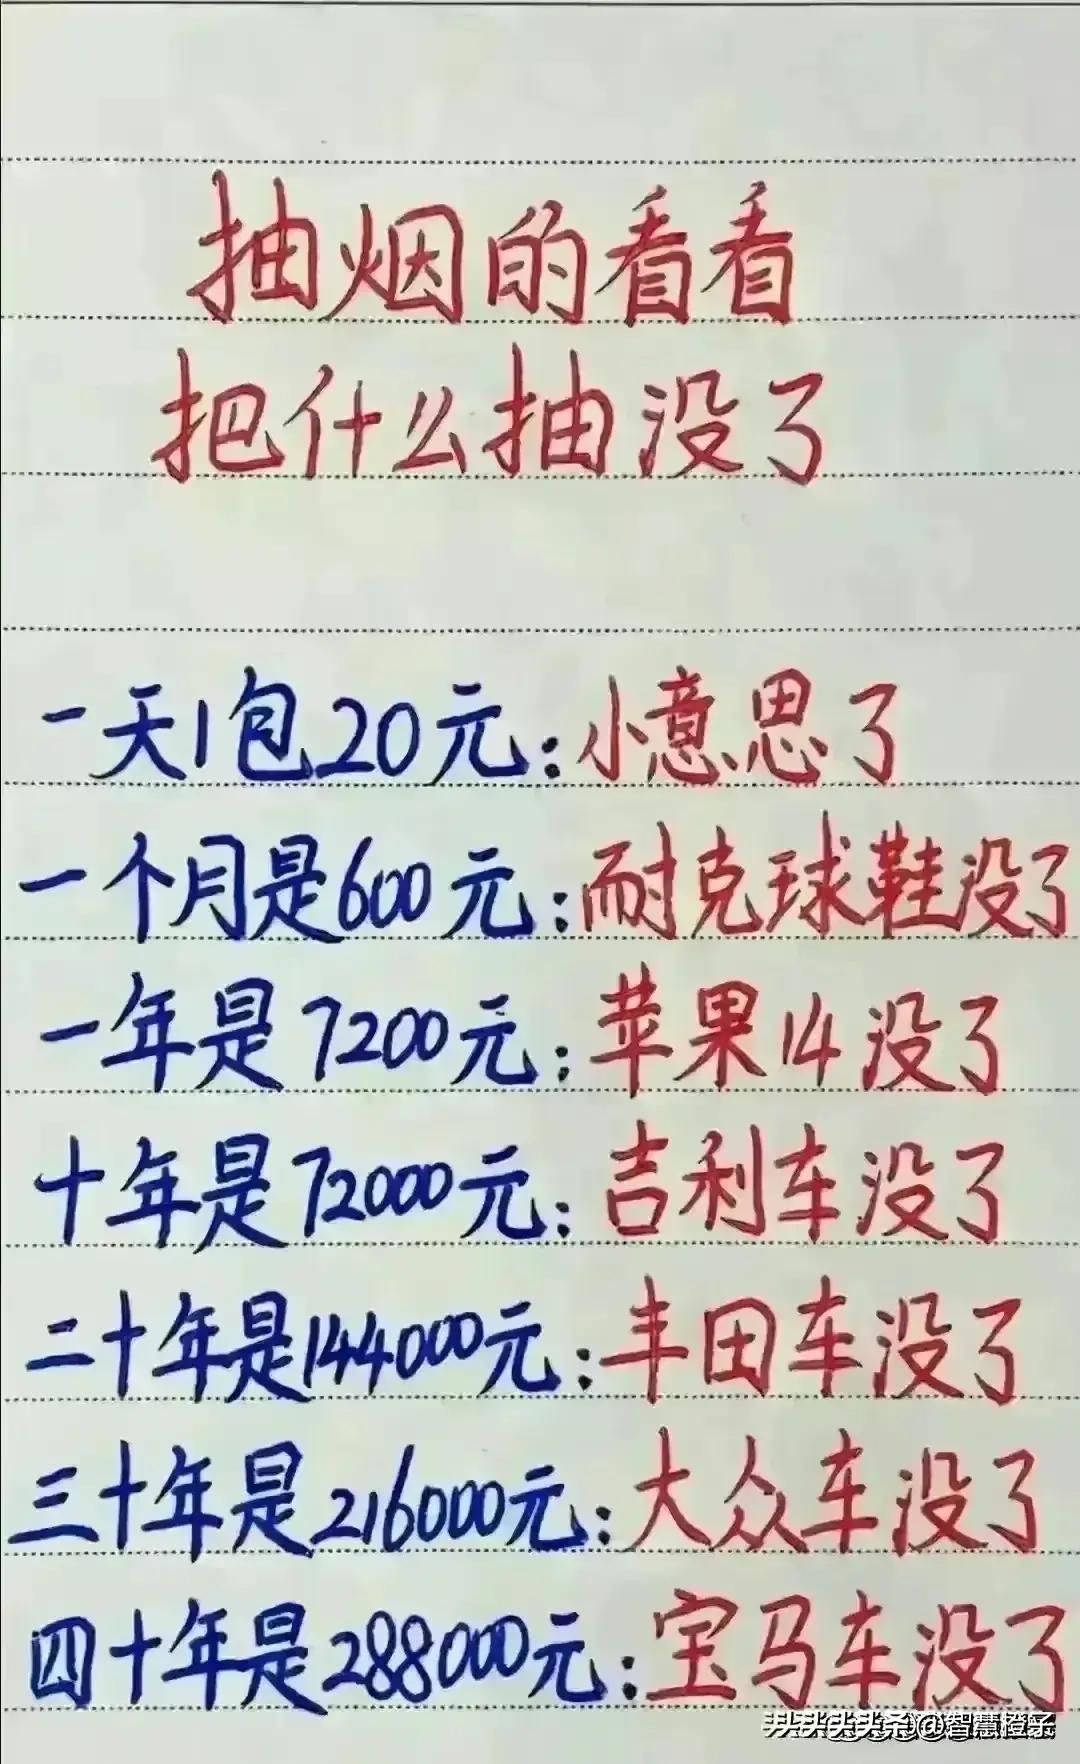 抽烟的看看
把什么抽没了
一天1包20元:小意思了
一个月是600元:耐克球鞋没了
一年是7200元:苹果14没了
十年是72000元:吉利车没了
二十年是144000元:丰田车没了
三十年是216000元:大众车没了
四十年是288000元:宝马车没了
@智慧橙子